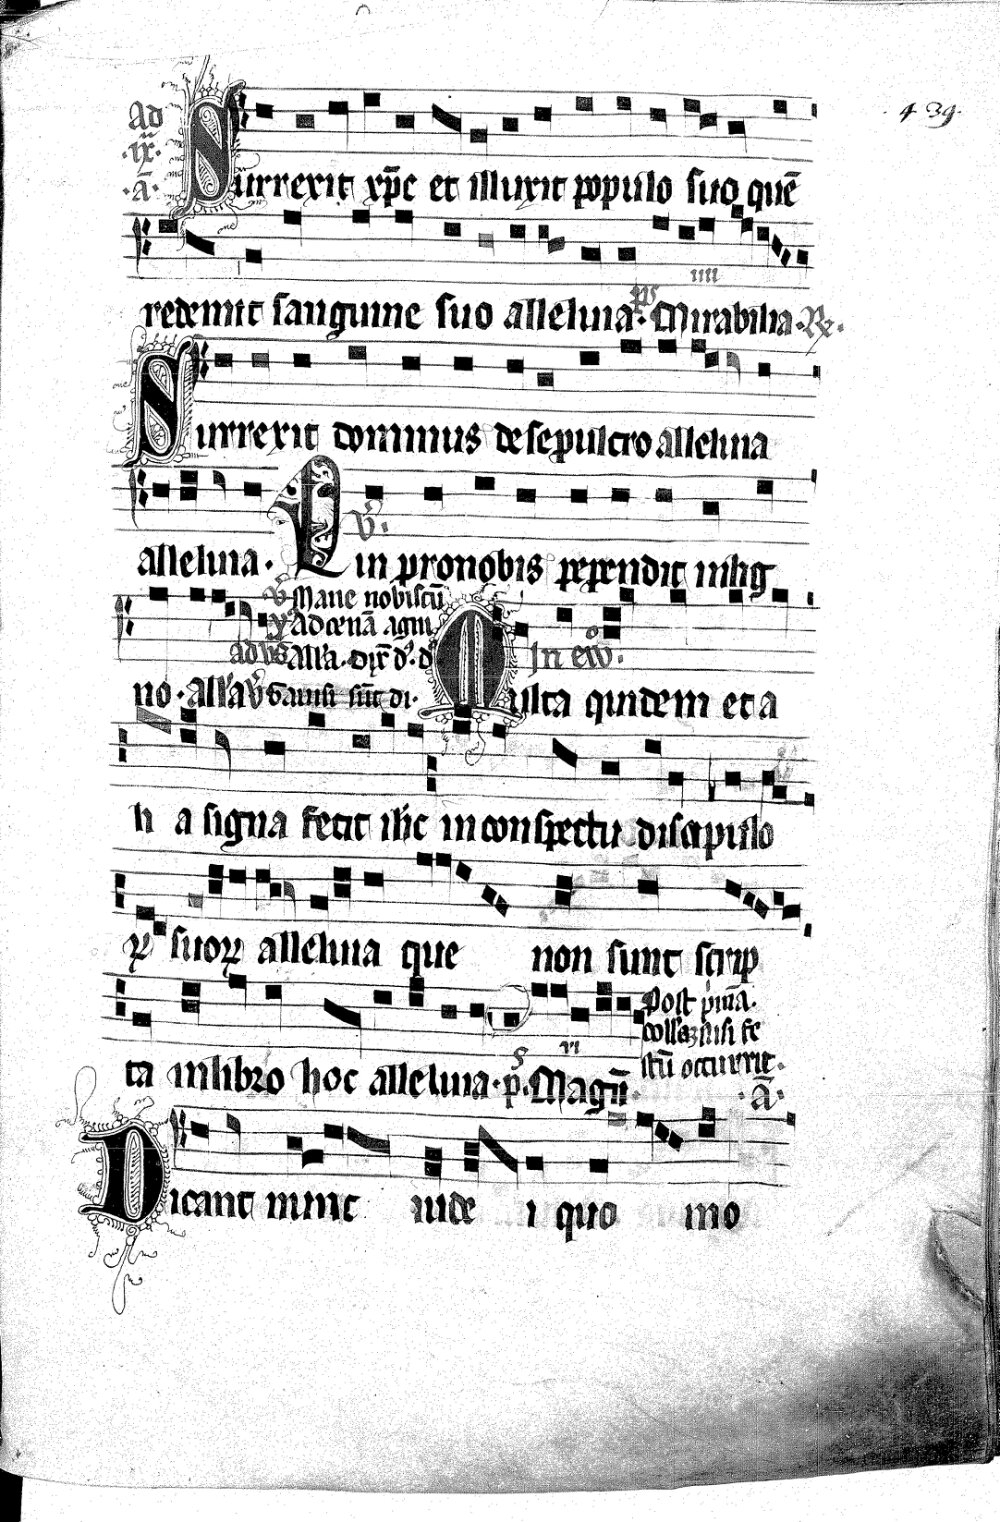 439.
Ad
·ix·
·a̅·
Surrexit xp̅c et illuxit populo suo que̅
redemit sanguine suo alleluia· p̅s Mirabilia· R̷e·
iiii
Surrexit dominus de sepulcro alleluia
alleluia· Qui pro nobis pependit in lig
V̷·
V̷ Mane nobiscu̅
Ad cena̅ agni
no· all'a V̷ Gauisi su̅t di·
In ew̅·
Multa quidem et a
li a signa fecit ih̅c in conspectu discipulo
rꝝ suoꝝ alleluia que non sunt scrip
ta in libro hoc alleluia· p̅s· Magn̅·
vi
Post p̅ma̅·
nisi fe
stu̅ occurrit·
·a̅·
Dicant nunc iude i quo mo